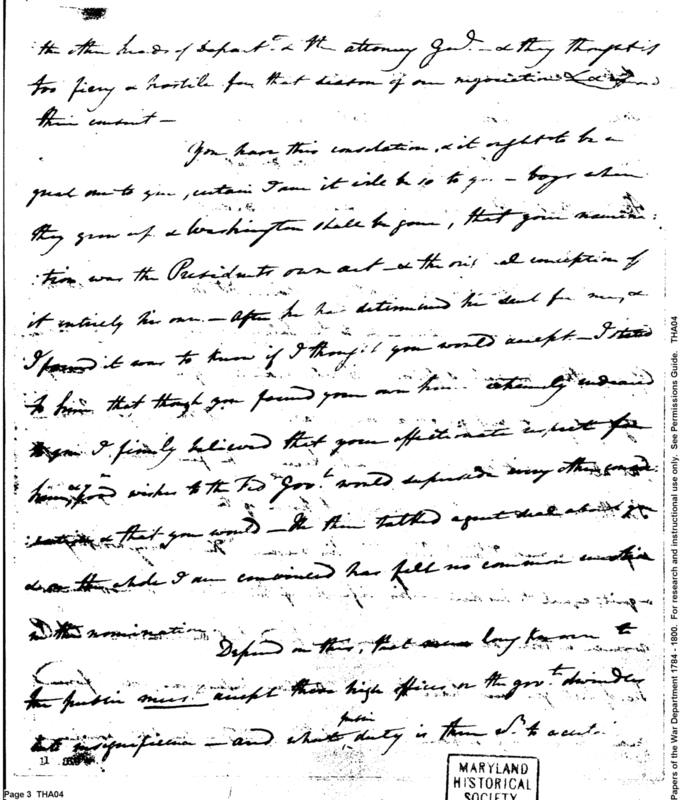 the other heads of Departts & the attorney Genl. — & they thought it
too fiery & hostile for that season of our negociation
their consent —
You have this consolation, & it ought to be a
great one to you, certain I am it will be so to yr — boys when
they grow up & Washington shall be gone, that your nomina:
:tion was the Presidents own act — & the conception of
it entirely his own — After he had determined he sent for me, &
I found it was to know if I thought you would accept — I stated
to him that though you found your own extremely endeared
to you I firmly believed that your affectionate respect for
him, & good wishes to the Fed Govt would supersede every other consid:
:eration & that you would — He then talked a great deal about yr
& on the whole I am convinced has felt no common
in the nomination
Depend on this, that men long known to
the public must accept these high offices or the govt dwindles
into insignificance — and what public duty is there Sr. to
11
MARYLAND
HISTORICAL
SOCIETY
Page 3 THA04
Papers of the War Department 1784 - 1800. For research and instructional use only. See Permissions Guide. THA04